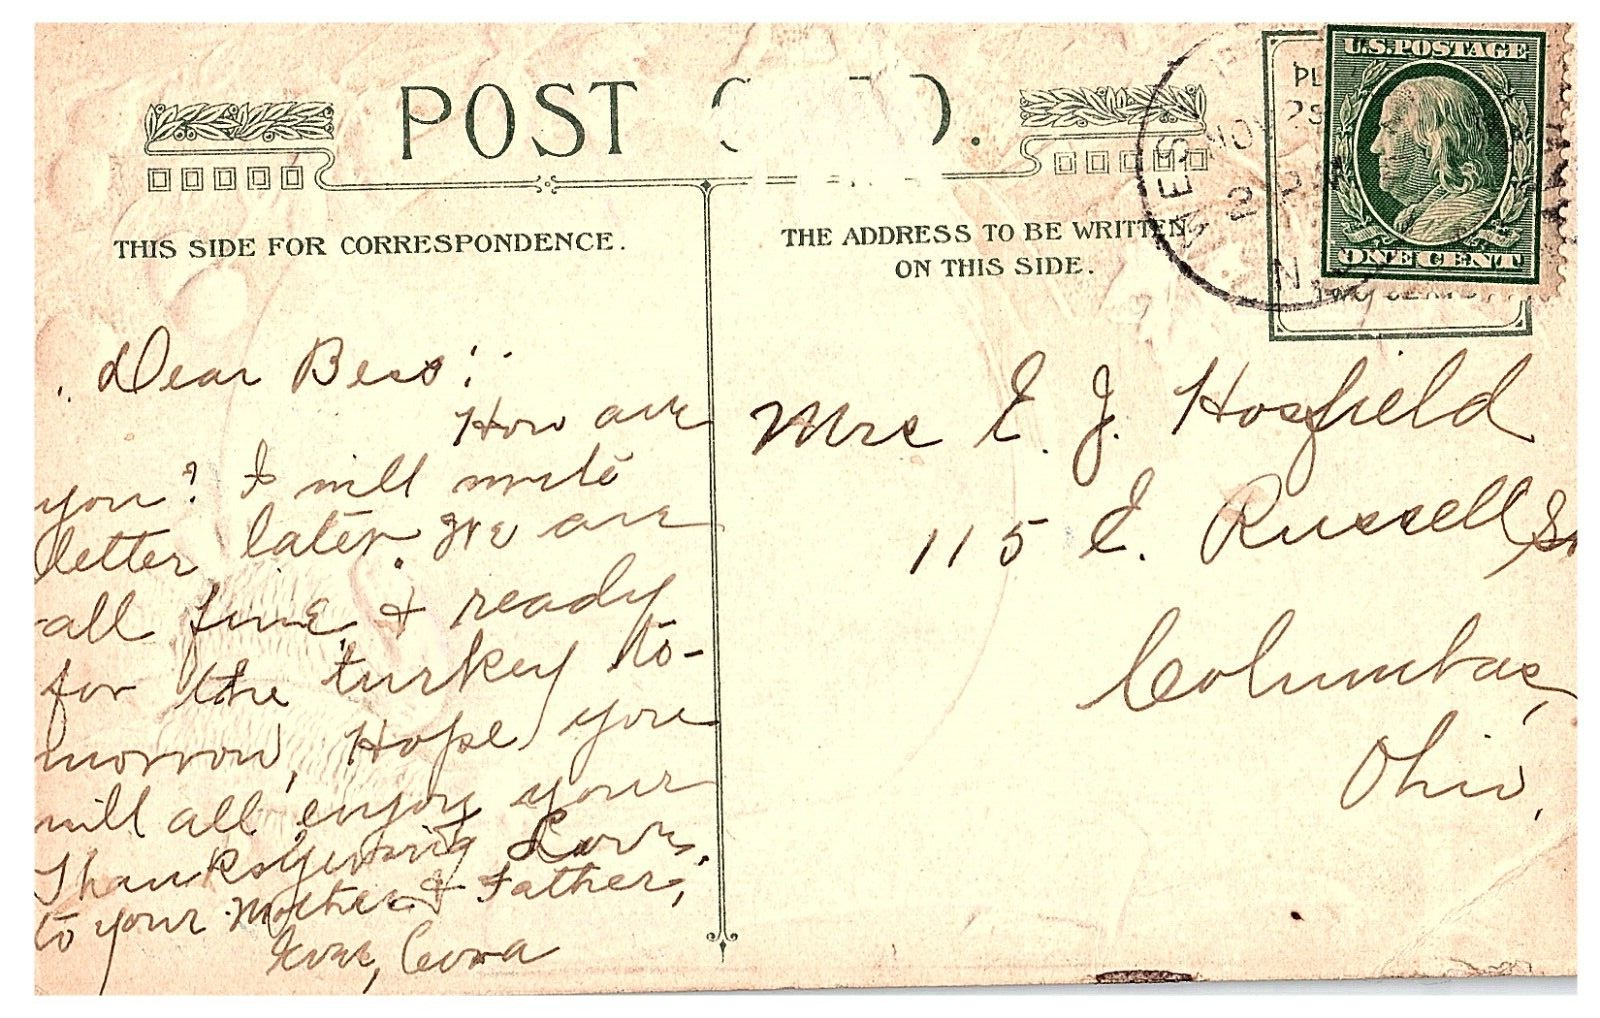 POST C D.
THIS SIDE FOR CORRESPONDENCE.
THE ADDRESS TO BE WRITTEN
ON THIS SIDE.
U.S. POSTAGE
ONE CENT
PL
NOV 25
N
TWO CENTS
Dear Bess:
How are
you? I will write
letter later. We are
all fine & ready
for the turkey to-
morrow, Hope you
will all enjoy your
Thanksgiving Love,
to your Mother & Father,
Love, Cora
Mrs E. J. Hosfield
115 E. Russell St
Columbus,
Ohio,